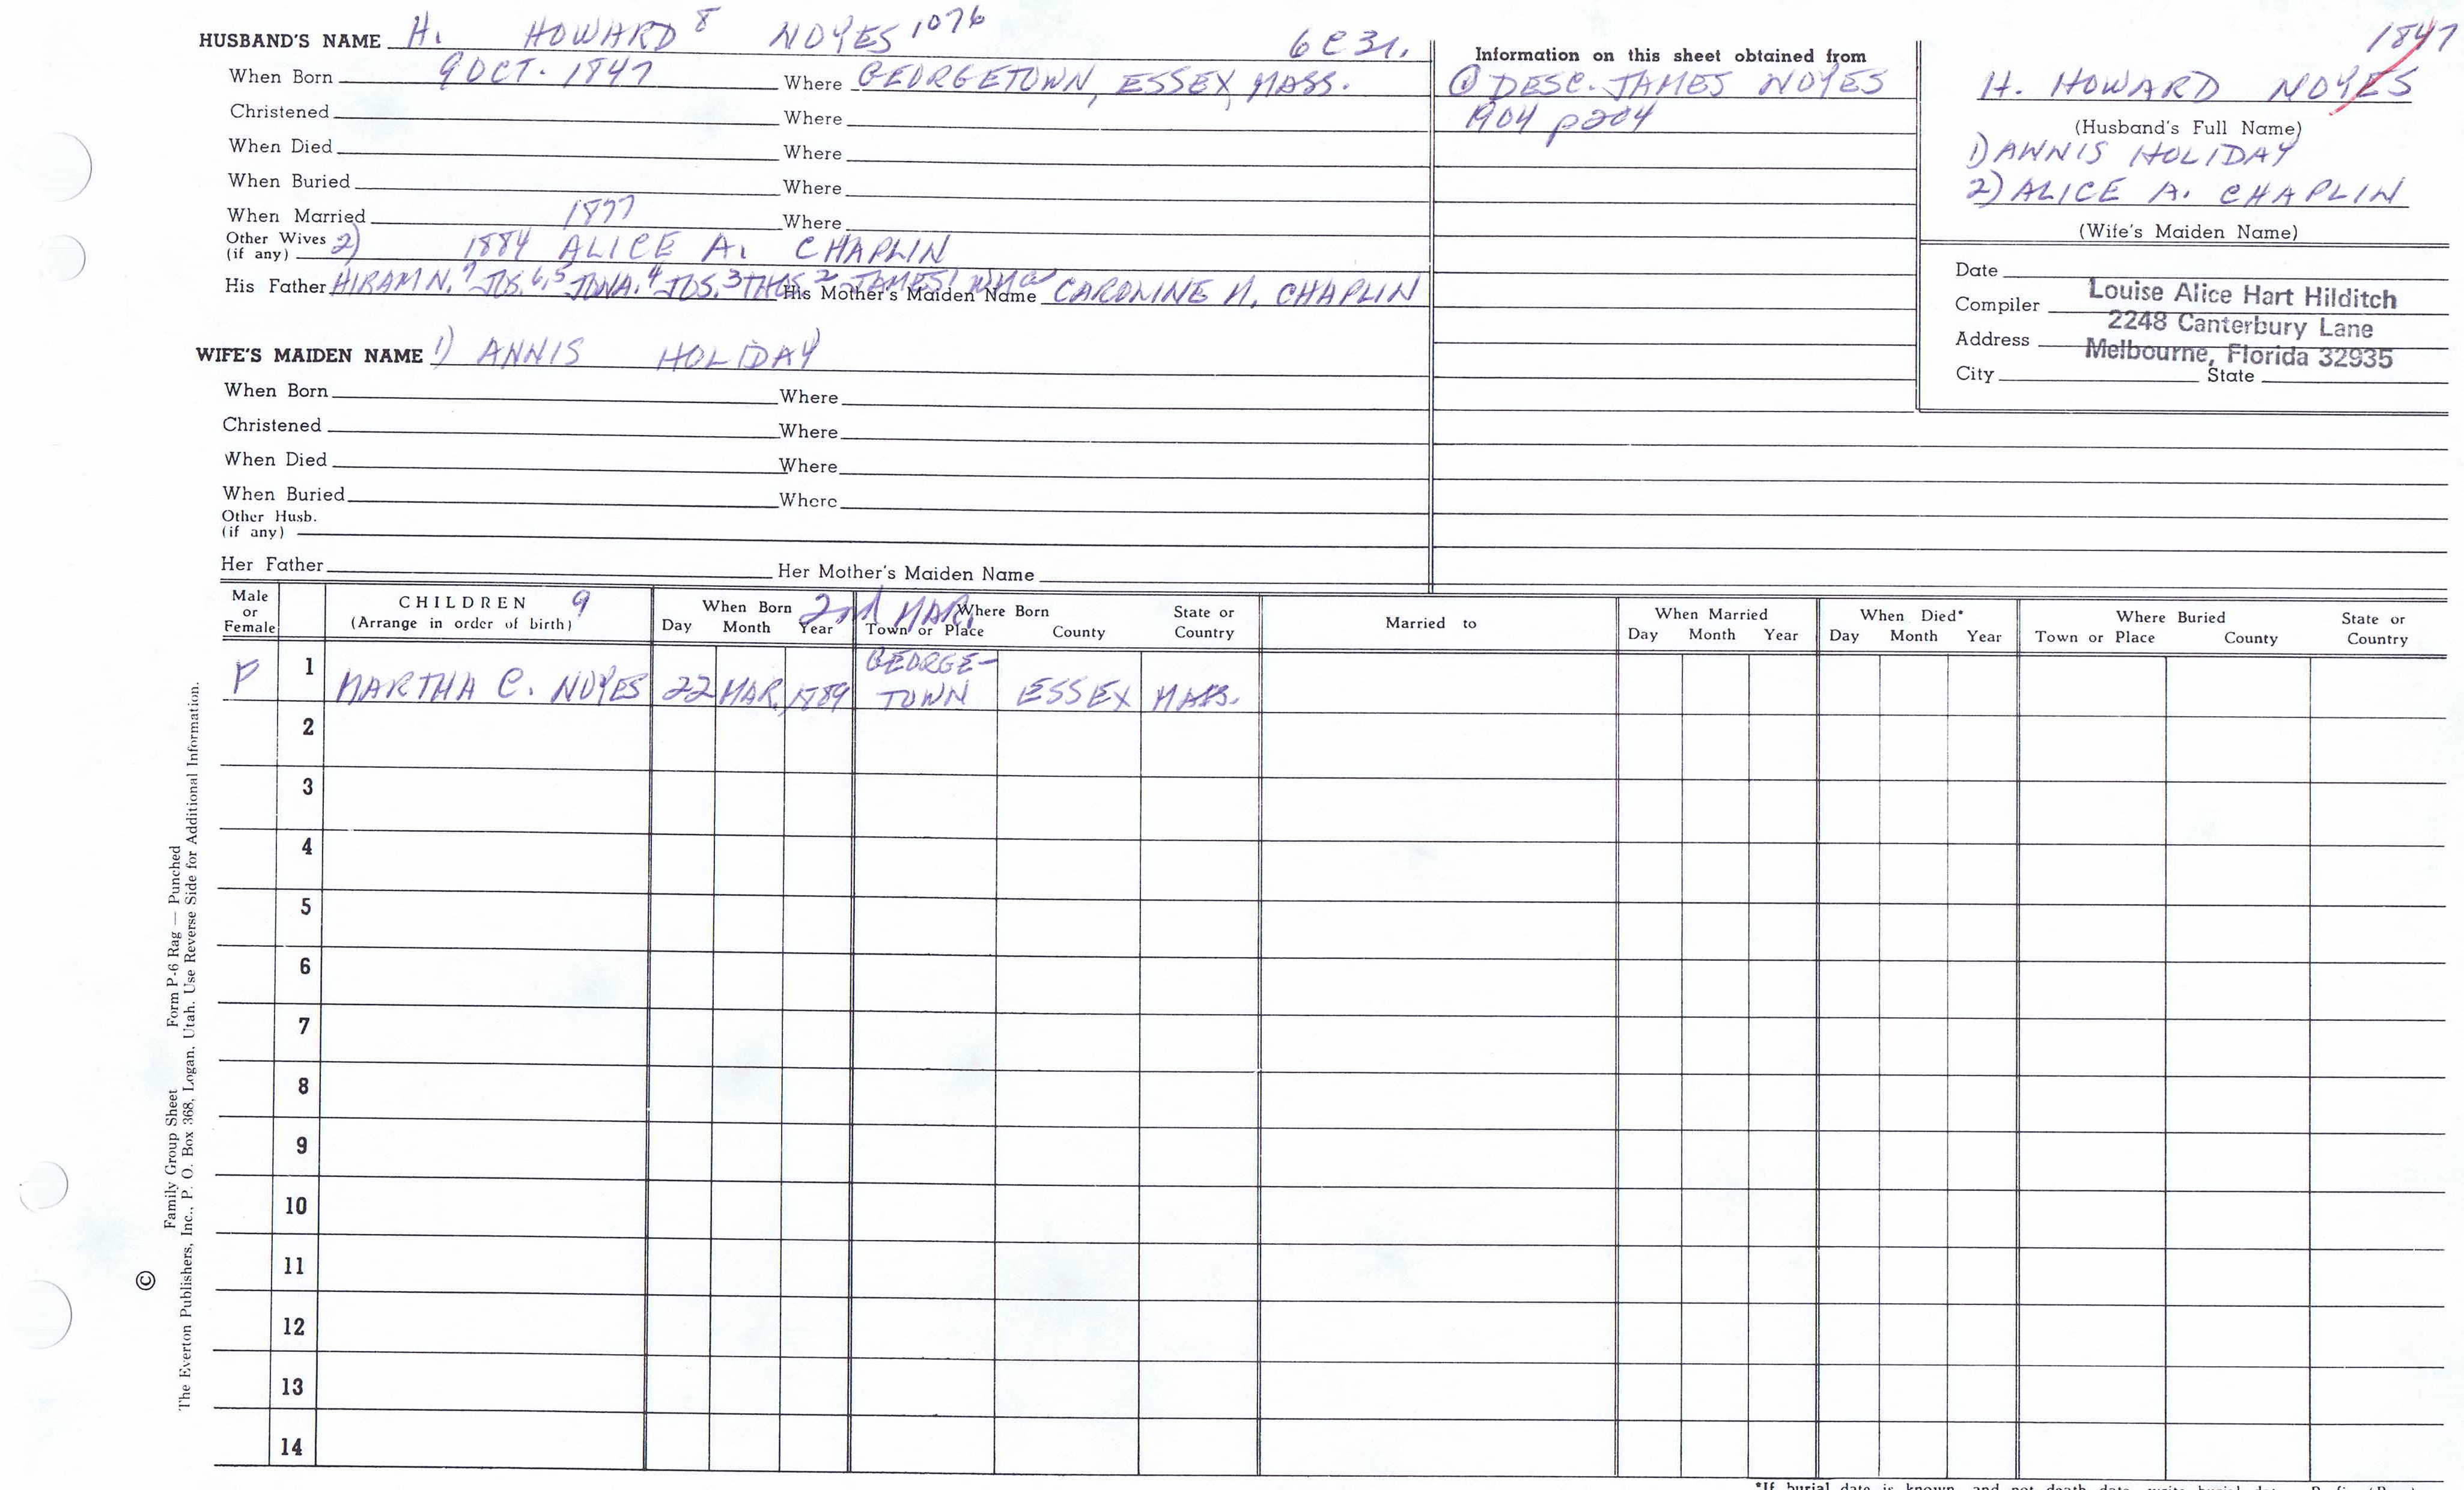 HUSBAND'S NAME H. HOWARD 8 NOYES 1076 6C31.
When Born 9 OCT. 1847 Where GEORGETOWN, ESSEX, MASS.
Christened Where
When Died Where
When Buried Where
When Married 1877 Where
Other Wives (if any) 2) 1884 ALICE A. CHAPLIN
His Father HIRAM N.7 JOS.6,5 JONA.4 JOS.3 THOS.2 JAMES1 His Mother's Maiden Name CAROLINE N. CHAPLIN
WIFE'S MAIDEN NAME 1) ANNIS HOLIDAY
When Born Where
Christened Where
When Died Where
When Buried Where
Other Husb.
(if any)
Her Father Her Mother's Maiden Name
Information on this sheet obtained from
① DESC. JAMES NOYES
1904 p204
1847
H. HOWARD NOYES
(Husband's Full Name)
1) ANNIS HOLIDAY
2) ALICE A. CHAPLIN
(Wife's Maiden Name)
Date
Compiler Louise Alice Hart Hilditch
Address 2248 Canterbury Lane
Melbourne, Florida 32935
City State
Male or Female CHILDREN 9 (Arrange in order of birth) When Born Day Month Year 2nd MAR. Where Born Town or Place County State or Country Married to When Married Day Month Year When Died* Day Month Year Where Buried Town or Place County State or Country
F 1 MARTHA C. NOYES 22 MAR. 1889 GEORGE-TOWN ESSEX MASS.
2
3
4
5
6
7
8
9
10
11
12
13
14
© Family Group Sheet Form P-6 Rag — Punched
The Everton Publishers, Inc., P. O. Box 368, Logan, Utah. Use Reverse Side for Additional Information.